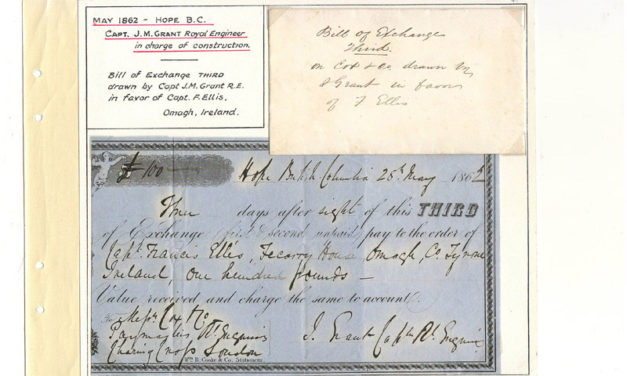 MAY 1862 - HOPE B.C.
CAPT. J.M. GRANT Royal Engineer
in charge of construction.
Bill of Exchange THIRD
drawn by Capt J.M. Grant R.E.
in favor of Capt. F. Ellis.
Omagh, Ireland.
Bill of Exchange
Third.
on Cox & Co drawn by
J Grant in favor
of F Ellis
£100 Hope British Columbia 26th May 1862
Three days after sight of this THIRD
of Exchange first & second unpaid pay to the order of
Capt. Francis Ellis, Fecarry House Omagh, Co. Tyrone
Ireland, One hundred pounds —
Value received and charge the same to account
To Messrs Cox & Co
Paymasters Rl. Engineers J. Grant Captn Rl. Engineers
Charing Cross London
B. Cooke & Co. Stationers